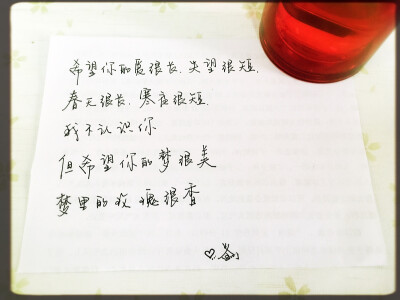 希望你的愿很长、失望很短.
春天很长、寒夜很短.
我不认识你
但希望你的梦很美
梦里的玫瑰很香